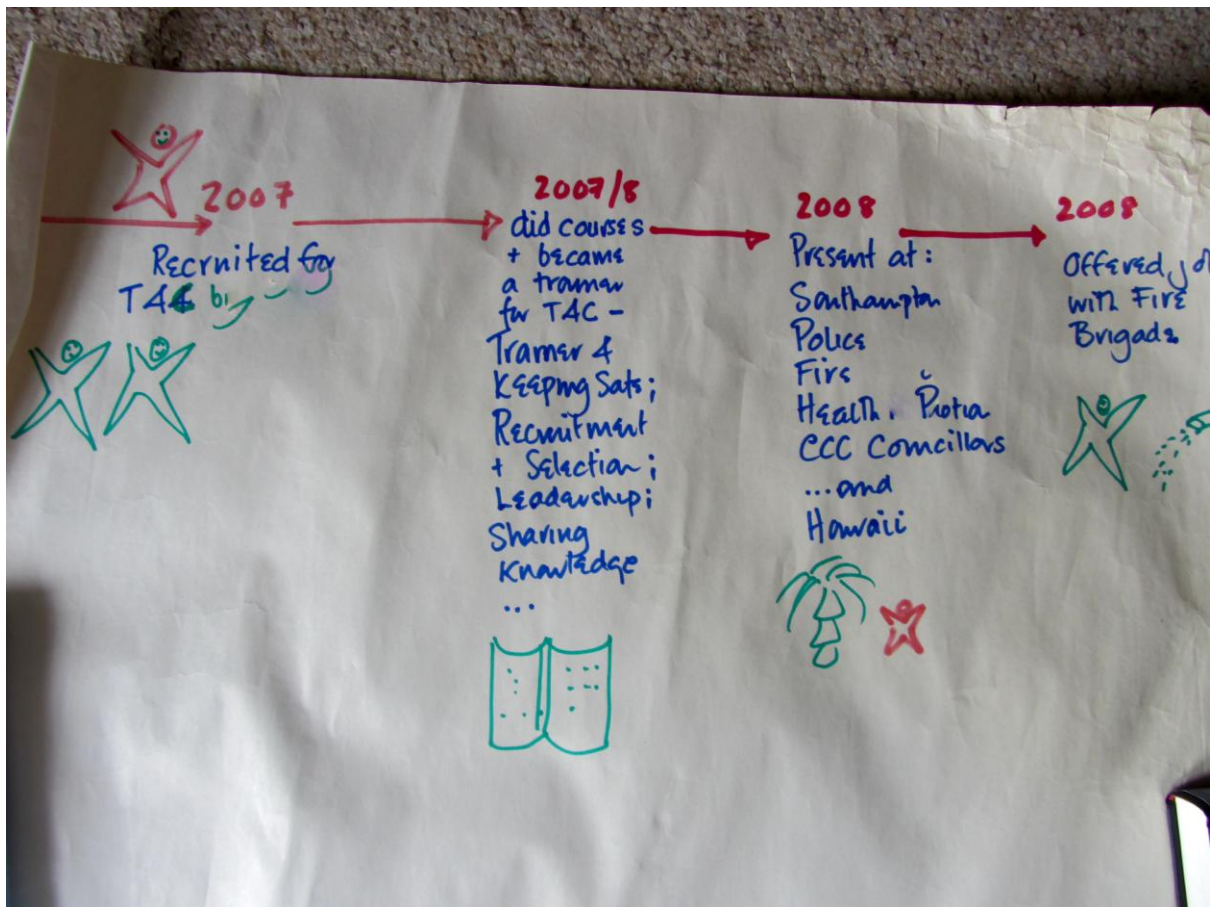 2007
Recruited for
TAC by
2007/8
did courses
+ became
a trainer
for TAC -
Trainer &
Keeping Safe;
Recruitment
+ Selection;
Leadership;
Sharing
Knowledge
...
2008
Present at:
Southampton
Police
Fire
Health,
CCC Councillors
...and
Hawaii
2008
Offered
with Fire
Brigade